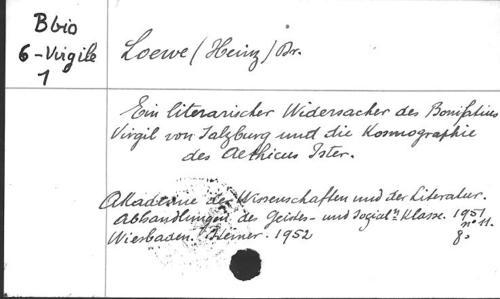 B bio
6-Virgile
1
Loewe (Heinz) Dr.
Ein literarischer Widersacher des Bonifatius
Virgil von Salzburg und die Kosmographie
des Aethicus Ister.
Akademie der Wissenschaften und der Literatur.
Abhandlungen des Geistes- und Sozial n Klasse. 1951
n° 11.
Wiesbaden. Steiner. 1952 8°